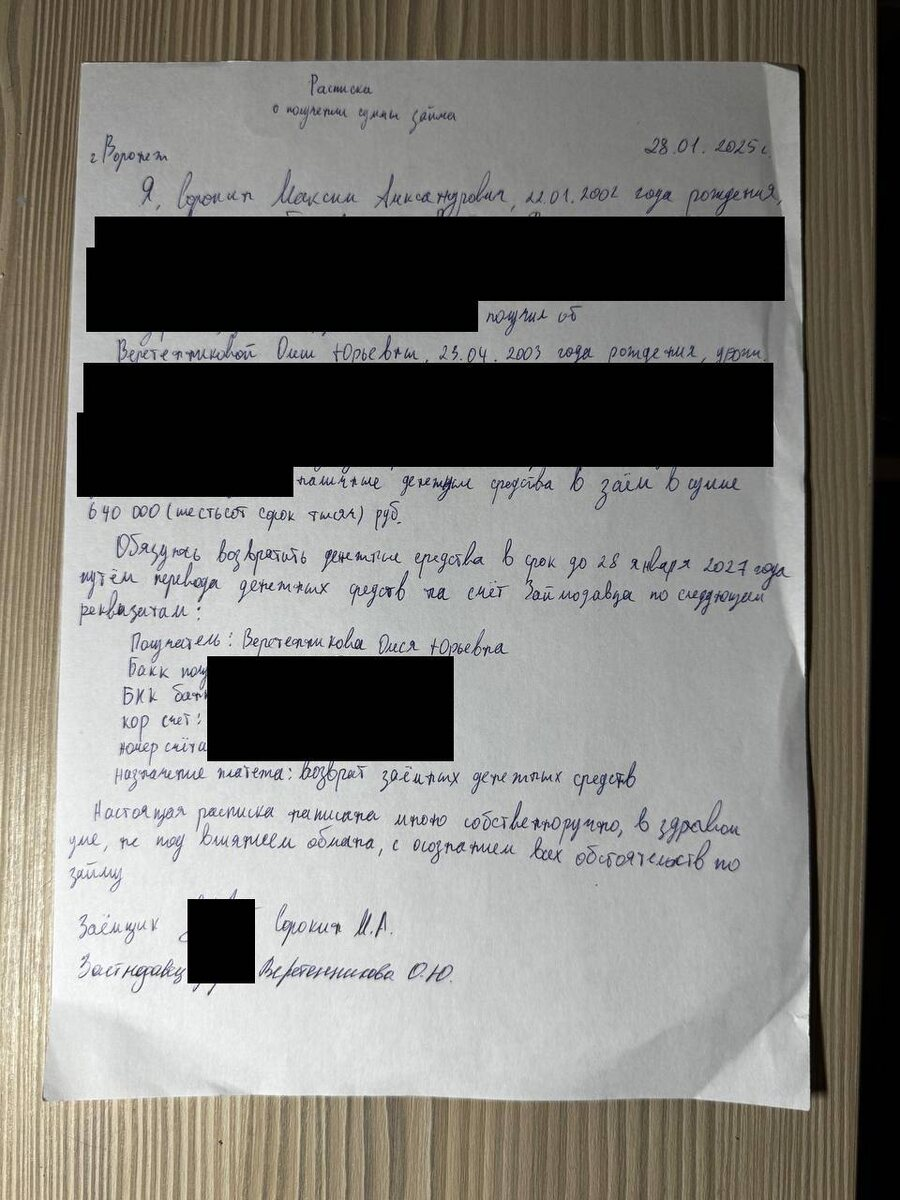 Расписка
о получении суммы займа
г. Воронеж 28.01.2025 г.
Я, Сорокин Максим Александрович, 22.01.2002 года рождения,
получил от
Веретенниковой Олиси Юрьевны, 23.04.2003 года рождения,
наличные денежные средства в заём в сумме
640 000 (шестьсот сорок тысяч) руб.
Обязуюсь возвратить денежные средства в срок до 28 января 2027 года
путём перевода денежных средств на счёт Займодавца по следующим
реквизитам:
Получатель: Веретенникова Олися Юрьевна
Банк
БИК
кор счёт:
номер счёта
назначение платежа: возврат заёмных денежных средств
Настоящая расписка написана мною собственноручно, в здравом
уме, не под влиянием обмана, с осознанием всех обстоятельств по
займу
Заёмщик Сорокин М.А.
Веретенникова О.Ю.